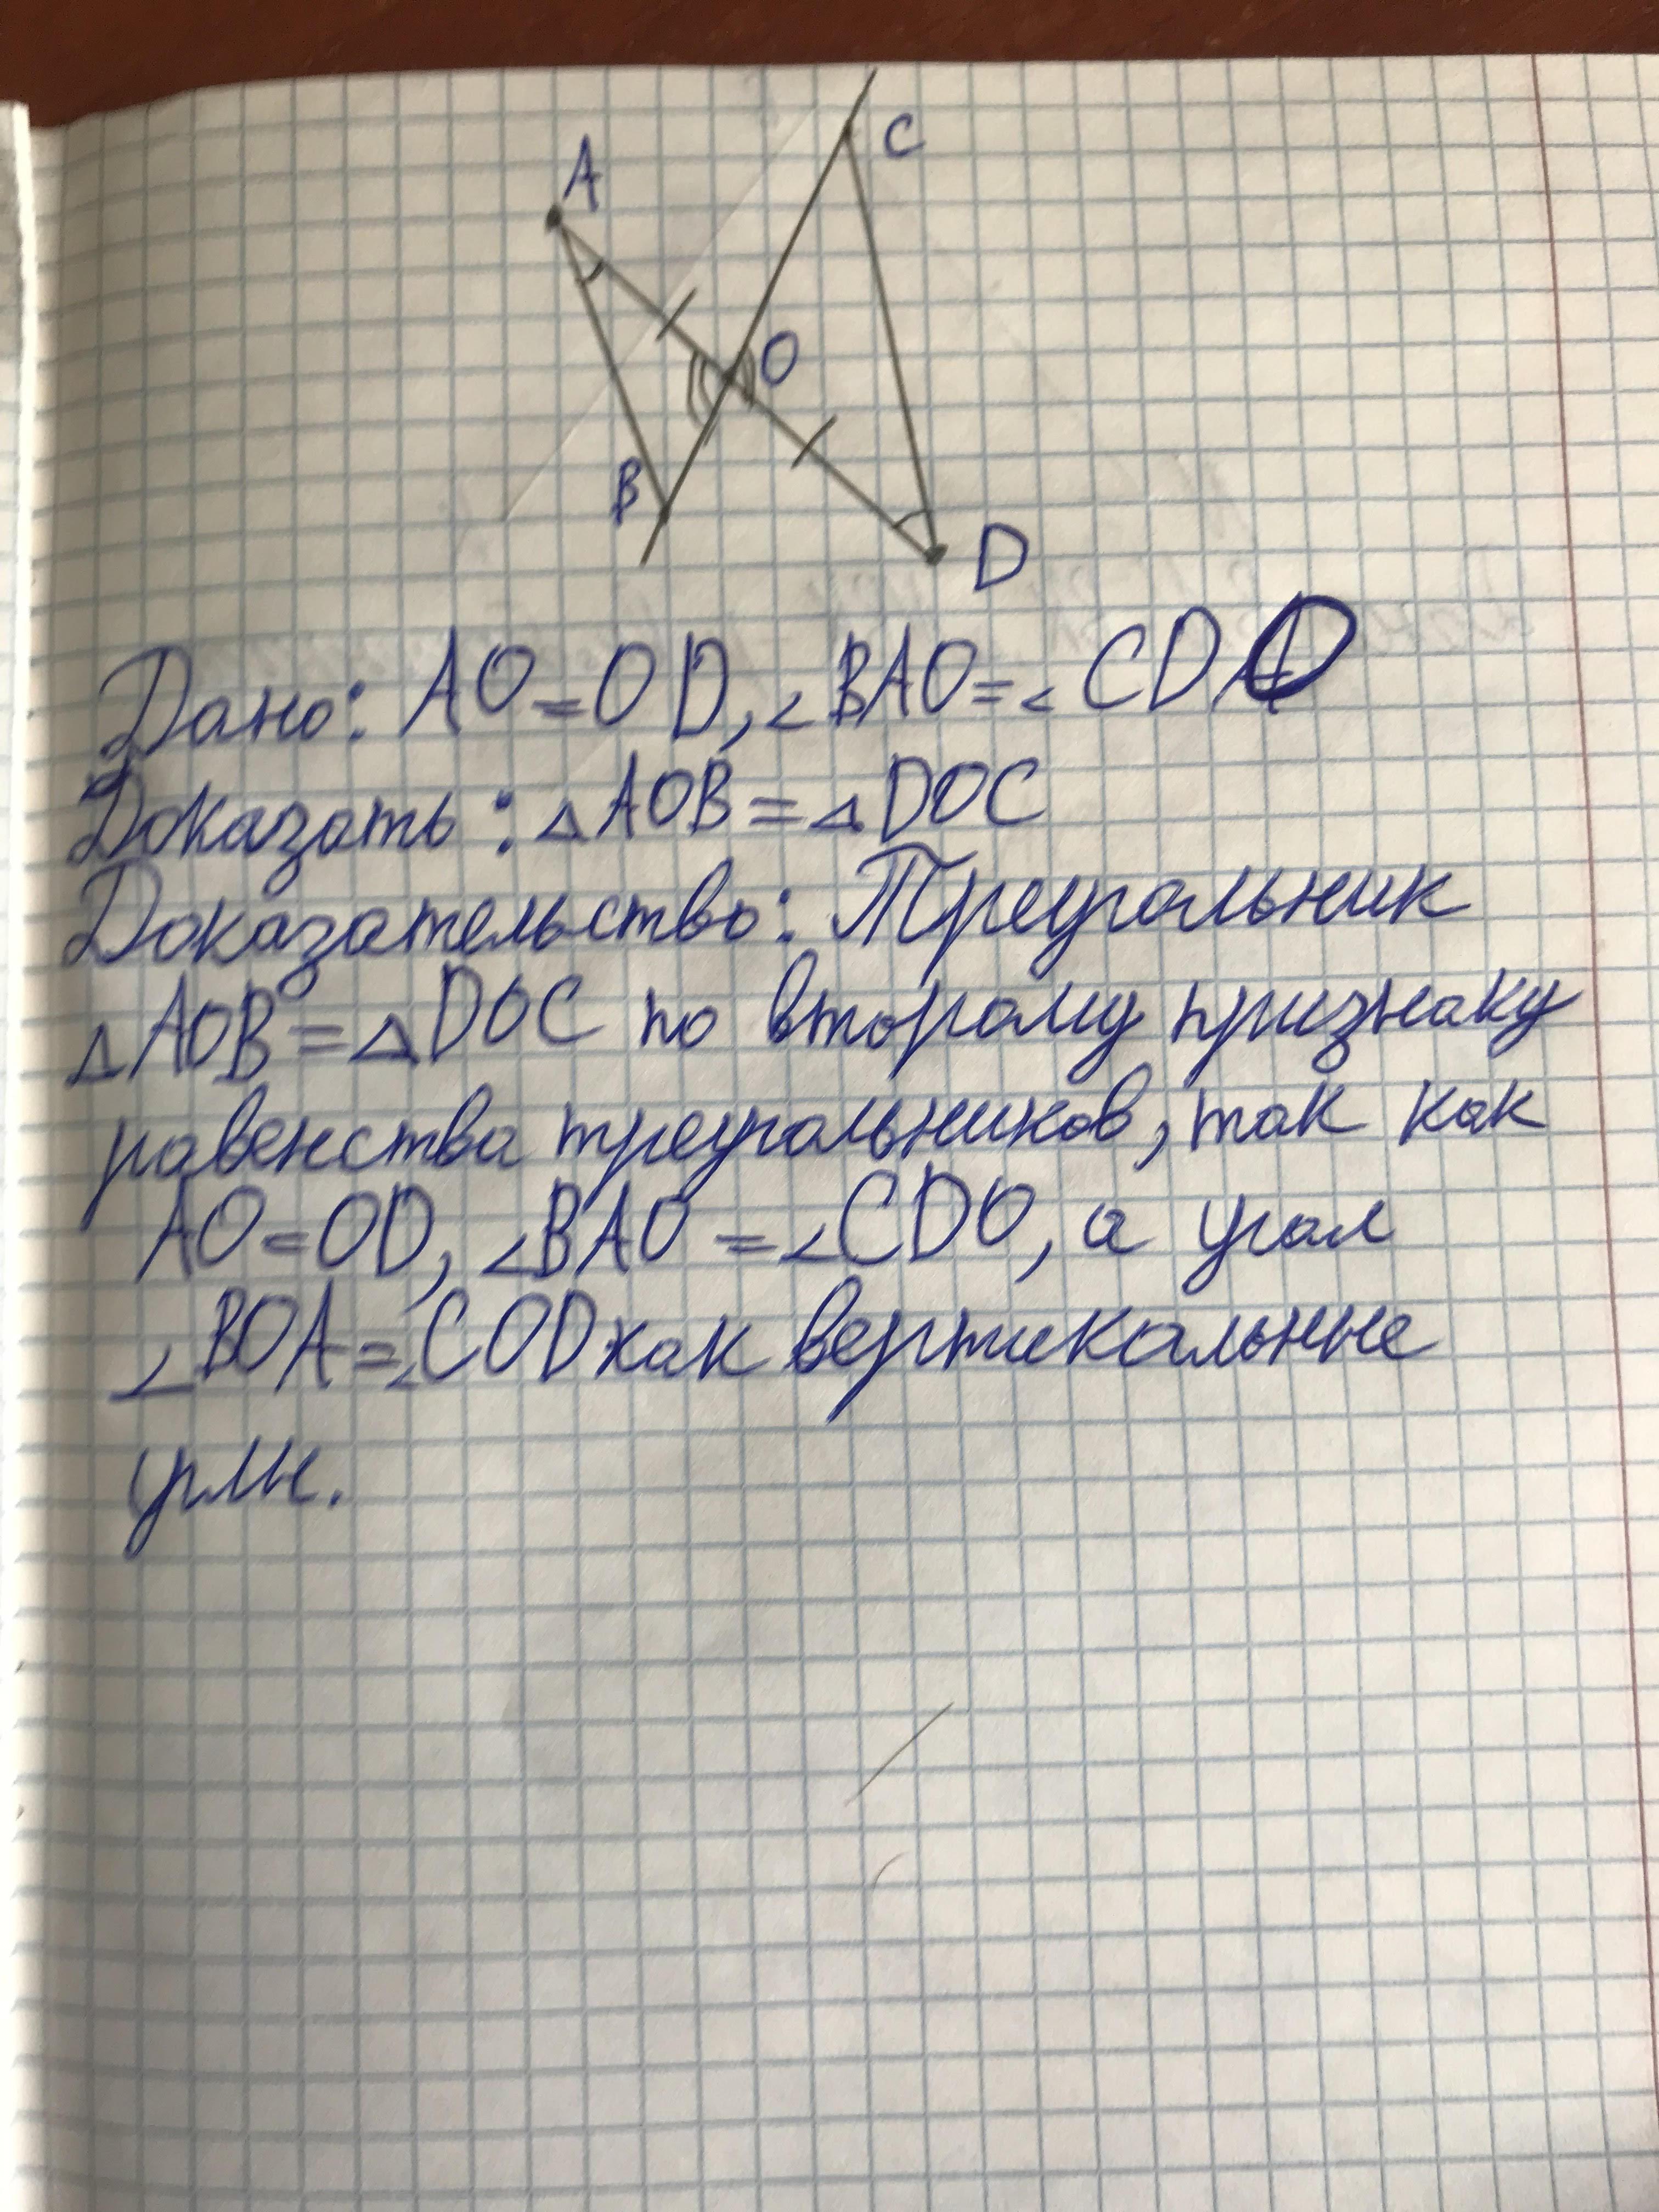 A
C
O
B
D
Дано: AO=OD, ∠BAO=∠CDO
Доказать: △AOB=△DOC
Доказательство: Треугольник
△AOB=△DOC по второму признаку
равенства треугольников, так как
AO=OD, ∠BAO=∠CDO, а угол
∠BOA=∠COD как вертикальные
углы.